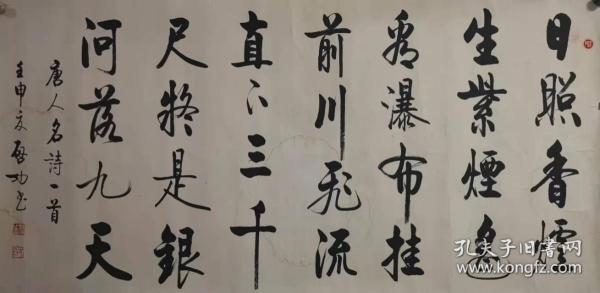 日照香爐
生紫煙遙
看瀑布挂
前川飛流
直下三千
尺疑是銀
河落九天
唐人名詩一首
壬申夏 啟功书
孔夫子旧书网
www.kongfz.com